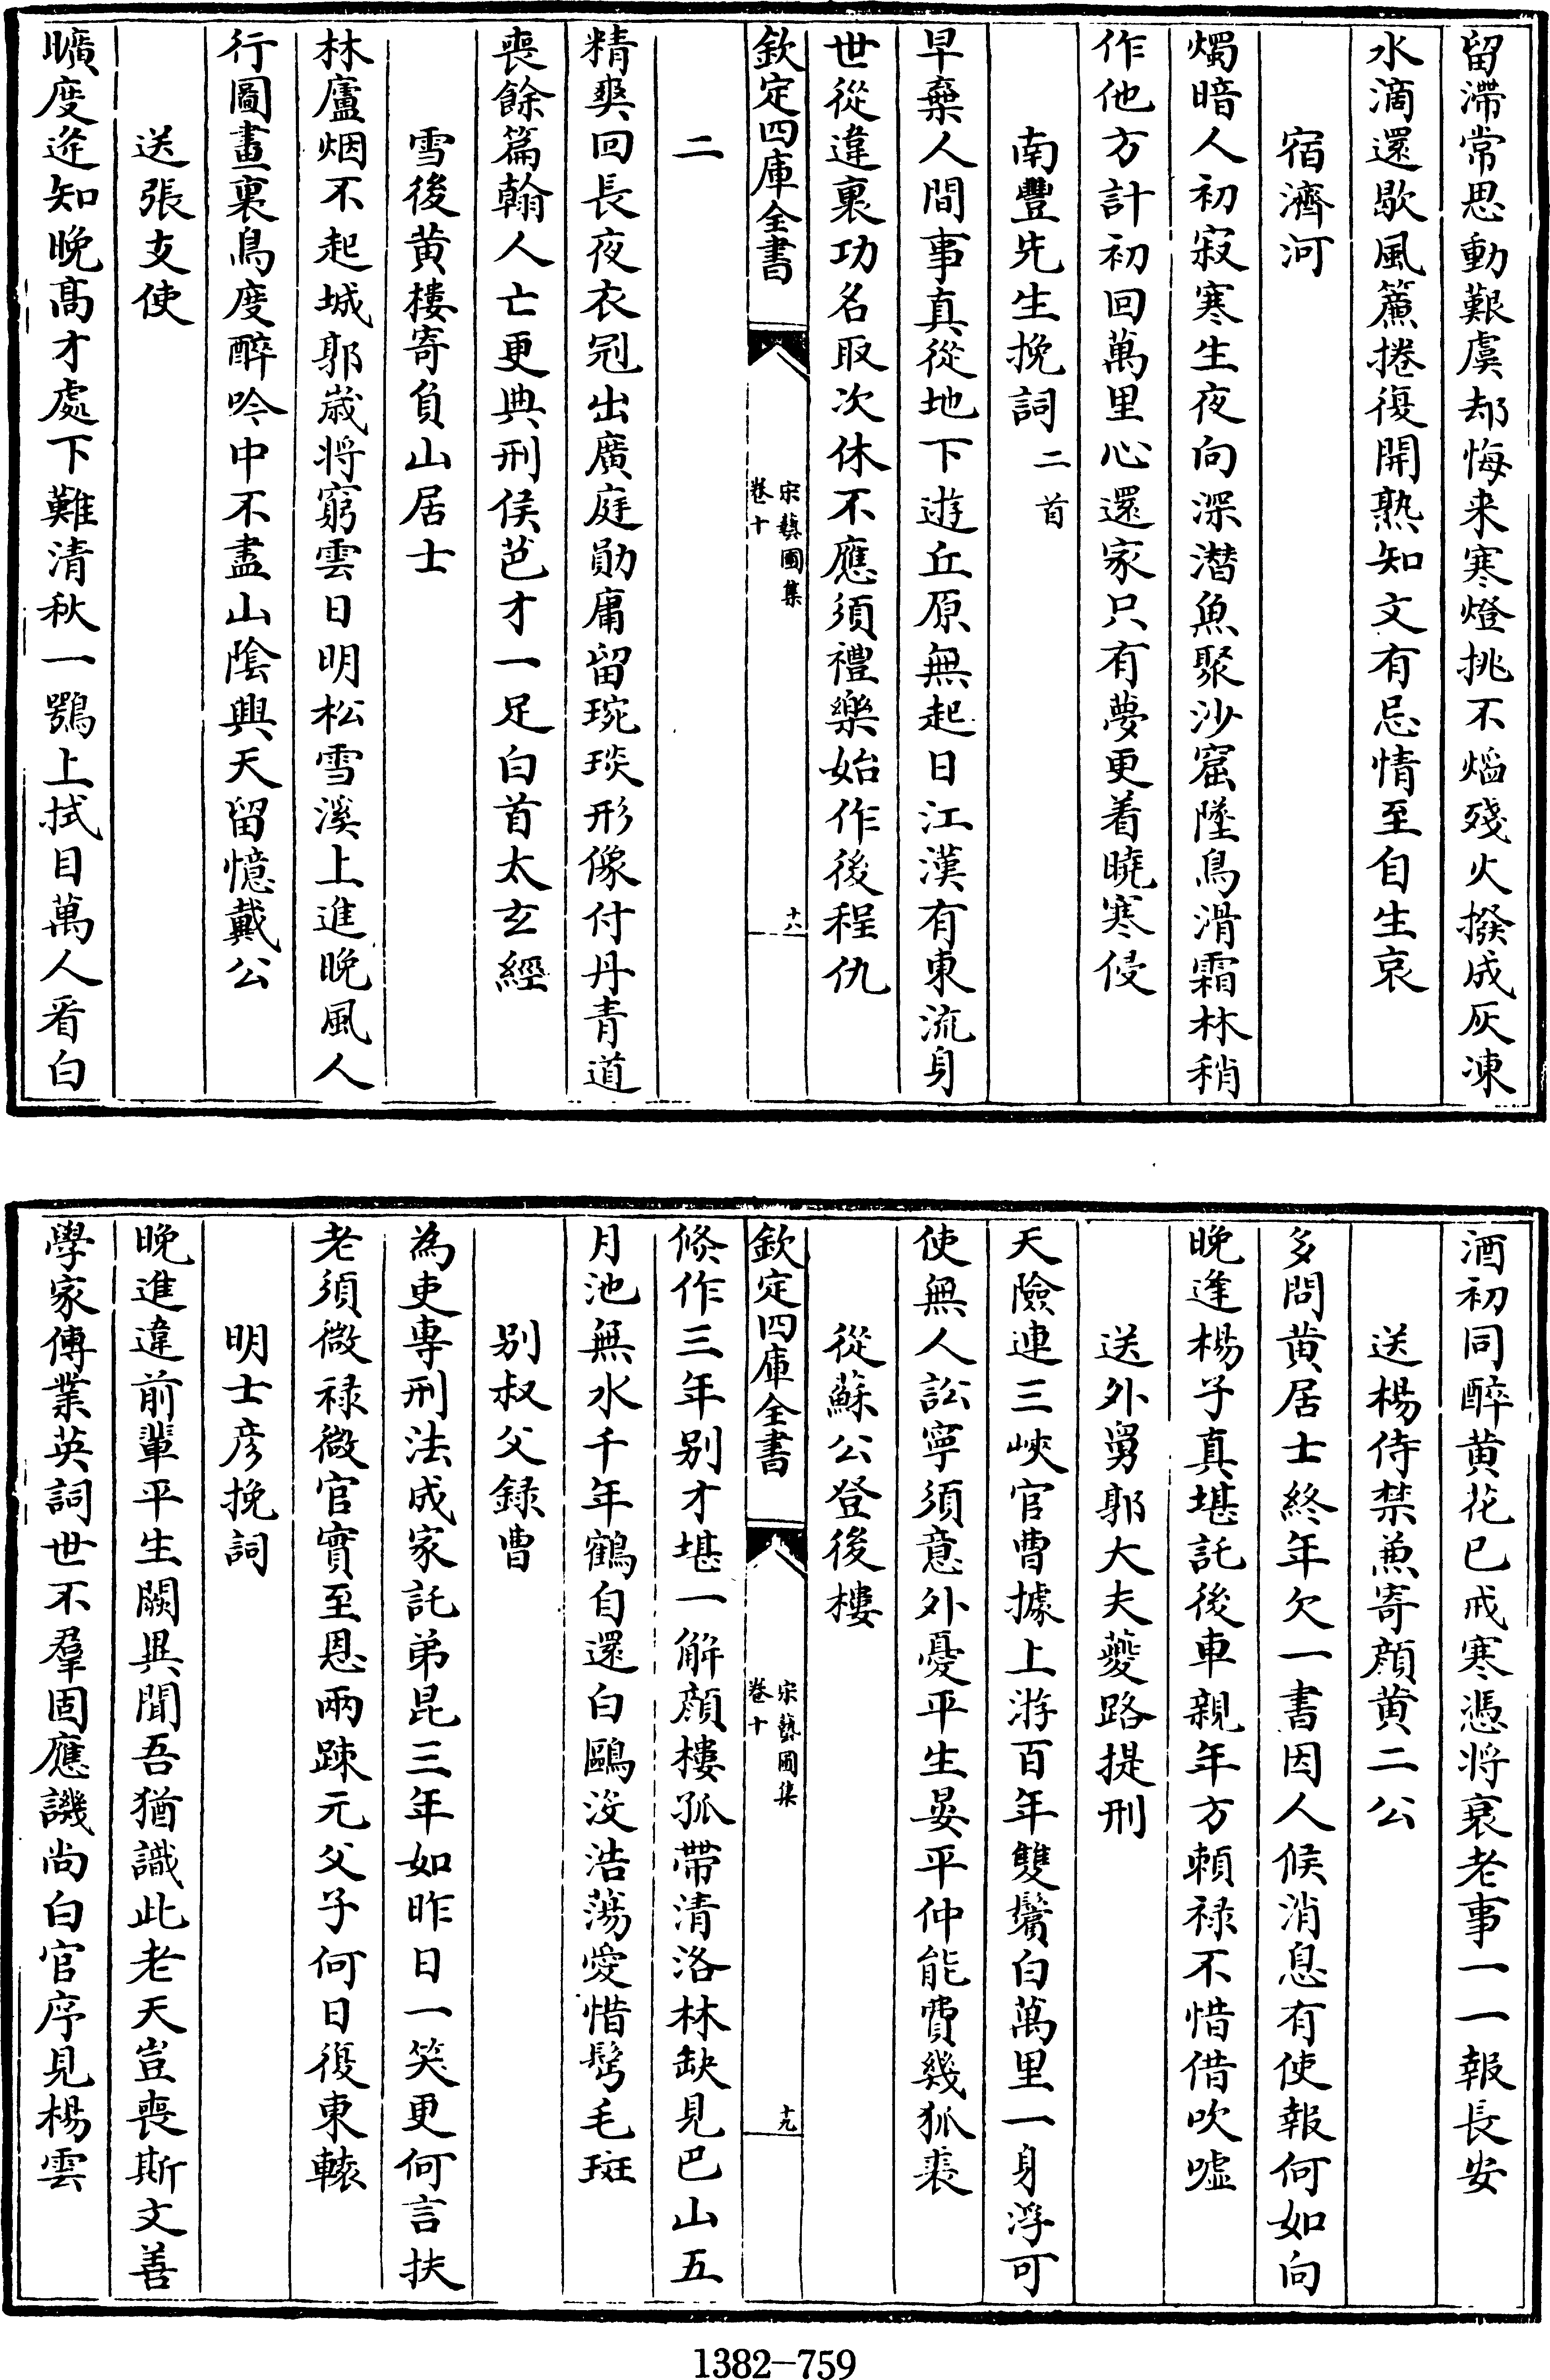 留滯常思動艱虞却悔来寒燈挑不熖殘火撥成灰凍
水滴還歇風簾捲復開熟知文有忌情至自生哀
宿濟河
燭暗人初寂寒生夜向深潛魚聚沙窟墜鳥滑霜林稍
作他方計初回萬里心還家只有夢更着曉寒侵
南豐先生挽詞二首
早棄人間事真從地下遊丘原無起日江漢有東流身
世從違裏功名取次休不應須禮樂始作後程仇
欽定四庫全書
宋藝圃集
卷十
十八
二
精爽回長夜衣冠出廣庭勛庸留琬琰形像付丹青道
喪餘篇翰人亡更典刑侯芭才一足白首太玄經
雪後黄樓寄負山居士
林廬烟不起城郭歲将窮雲日明松雪溪上進晚風人
行圖畫裏鳥度醉吟中不盡山隂興天留憶戴公
送張支使
曠度逆知晚髙才處下難清秋一鶚上拭目萬人看白
酒初同醉黄花已戒寒憑将衰老事一一報長安
送楊侍禁兼寄顔黄二公
多問黄居士終年欠一書因人候消息有使報何如向
晚逢楊子真堪託後車親年方頼禄不惜借吹嘘
送外舅郭大夫夔路提刑
天險連三峽官曹據上游百年雙鬢白萬里一身浮可
使無人訟寧須意外憂平生晏平仲能費幾狐裘
從蘇公登後樓
欽定四庫全書
宋藝圃集
卷十
十九
倐作三年别才堪一解顔樓孤帶清洛林缺見巴山五
月池無水千年鶴自還白鷗没浩蕩愛惜鬂毛斑
别叔父録曹
為吏專刑法成家託弟昆三年如昨日一笑更何言扶
老須微禄微官實至恩兩踈元父子何日復東轅
明士彦挽詞
晚進違前輩平生闕異聞吾猶識此老天豈喪斯文善
學家傳業英詞世不羣固應譏尚白官序見楊雲
1382—759